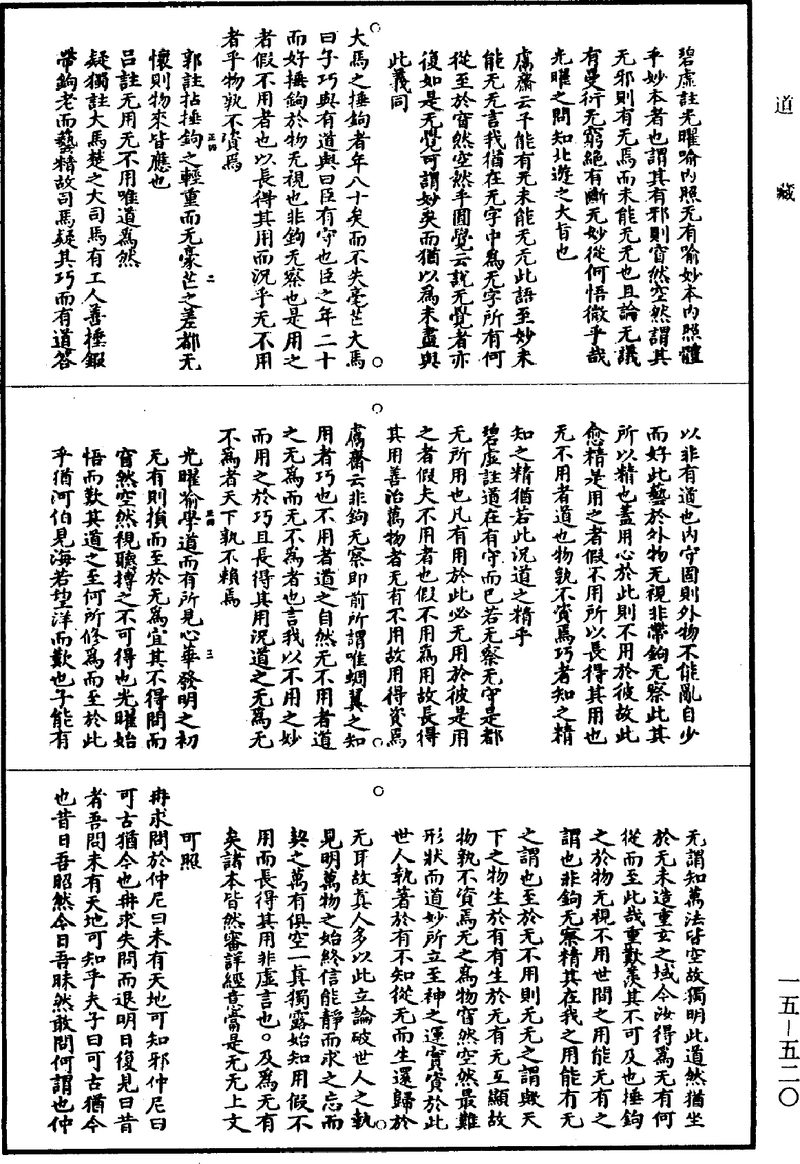 道藏
碧虛註光曜喻內照无有喻妙本內照體
乎妙本者也謂其有邪則窅然空然謂其
无邪則有无焉而未能无无也且論无議
有曼衍无窮絕有斷无妙從何悟微乎哉
光曜之問知北遊之大旨也
鬳齋云予能有无未能无无此語至妙未
能无无言我猶在无字中為无字所有何
從至於窅然空然乎圓覺云說无覺者亦
復如是无覺可謂妙矣而猶以為未盡與
此義同
大馬之捶鉤者年八十矣而不失毫芒大馬
曰子巧與有道與曰臣有守也臣之年二十
而好捶鉤於物无視也非鉤无察也是用之
者假不用者也以長得其用而況乎无不用
者乎物孰不資焉
郭註拈捶鉤之輕重而无豪芒之差都无
懷則物來皆應也
呂註无用无不用唯道為然
疑獨註大馬楚之大司馬有工人善捶鍜
帶鉤老而藝精故司馬疑其巧而有道答
以非有道也內守固則外物不能亂自少
而好此藝於外物无視非帶鉤无察此其
所以精也蓋用心於此則不用於彼故此
愈精是用之者假不用所以長得其用也
无不用者道也物孰不資焉巧者知之精
知之精猶若此況道之精乎
碧虛註道在有守而已若无察无守是都
无所用也凡有用於此必无用於彼是用
之者假夫不用者也假不用為用故長得
其用善治萬物者无有不用故用得資焉
鬳齋云非鉤无察即前所謂唯蜩翼之知
用者巧也不用者道之自然无不用者道
之无為而无不為者也言我以不用之妙
而用之於巧且長得其用況道之无為无
不為者天下孰不賴焉
光曜喻學道而有所見心華發明之初
无有則損而至於无為宜其不得問而
窅然空然視聽搏之不可得也光曜始
悟而歎其道之至何所修為而至於此
乎猶河伯見海若望洋而歎也予能有
无謂知萬法皆空故獨明此道然猶坐
於无未造重玄之域今汝得為无有何
從而至此哉重歎羨其不可及也捶鉤
之於物无視不用世間之用能无有之
謂也非鉤无察精其在我之用能有无
之謂也至於无不用則无无之謂歟天
下之物生於有有生於无有无互顯故
物孰不資焉无之為物窅然空然最難
形狀而道妙所立至神之運實資於此
世人執著於有不知從无而生還歸於
无耳故真人多以此立論破世人之執
見明萬物之始終信能靜而求之忘而
契之萬有俱空一真獨露始知用假不
用而長得其用非虛言也。及為无有
矣諸本皆然審詳經意當是无无上文
可照
冉求問於仲尼曰未有天地可知邪仲尼曰
可古猶今也冉求失問而退明日復見曰昔
者吾問未有天地可知乎夫子曰可古猶今
也昔日吾昭然今日吾昧然敢問何謂也仲
一五—五二〇